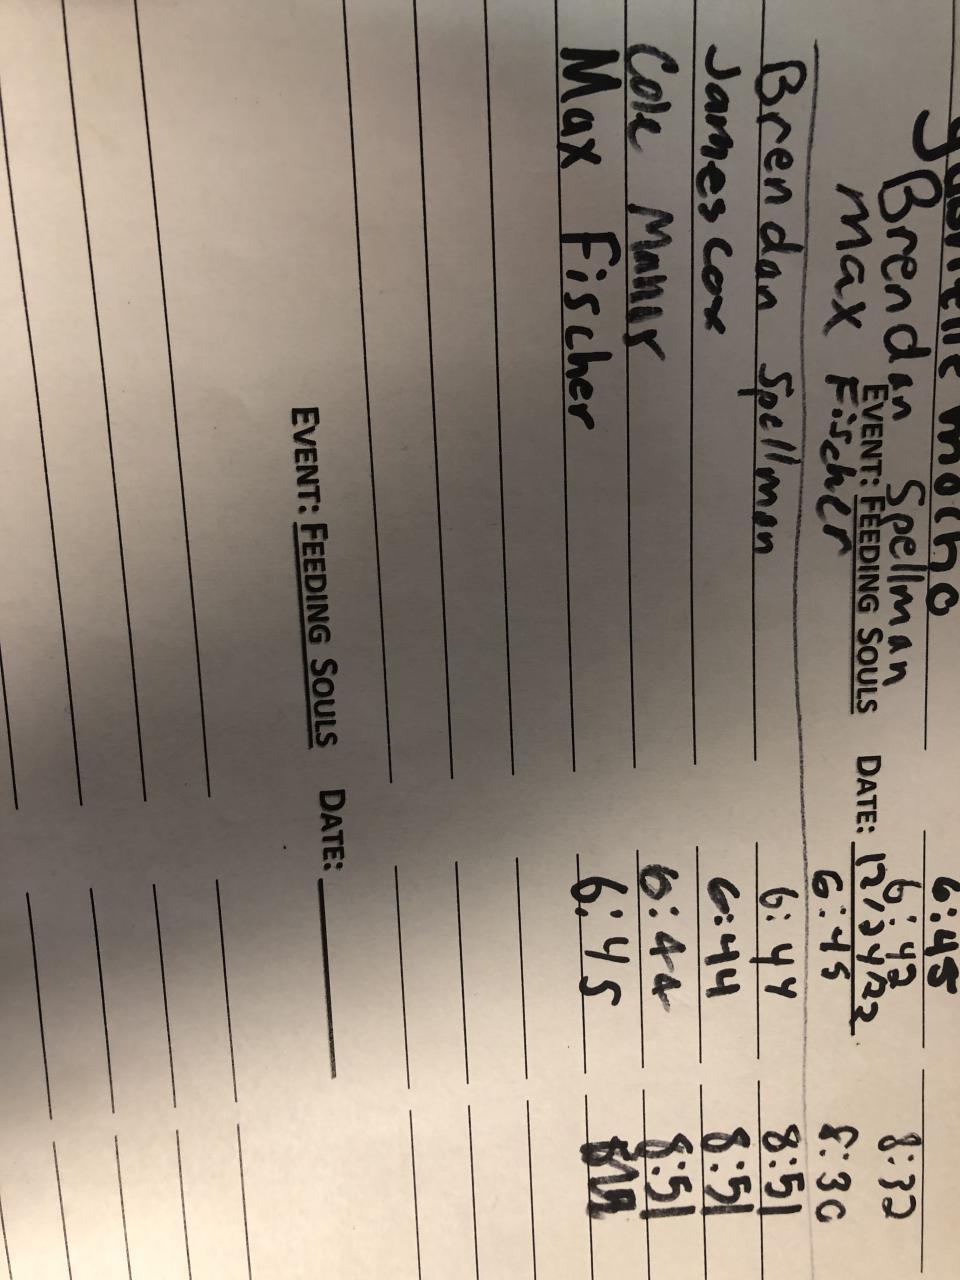 mocho 6:45
Brendan Spellman 6:42 8:32
EVENT: FEEDING SOULS DATE: 12/24/22
Max Fischer 6:45 8:30
Brendan Spellman 6:44 8:51
James Cox 6:44 8:51
Cole 6:44 8:51
Max Fischer 6:45
EVENT: FEEDING SOULS DATE: